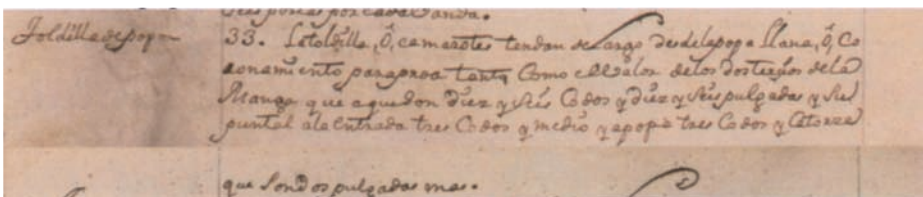 Seis portas por cada vanda.
Toldilla de popa
33. La toldilla, Ô, camarotes tendan de largo desde la popa llana, Ô, Co
ronamiento para proa tanto Como el Valor de los dos terzios de la
Manga que a quedon diez y Seis Codos y diez y Seis pulgadas y Su
puntal a la entrada tres Codos y medio y a popa tres Codos y Catorze
que Son dos pulgadas mas.